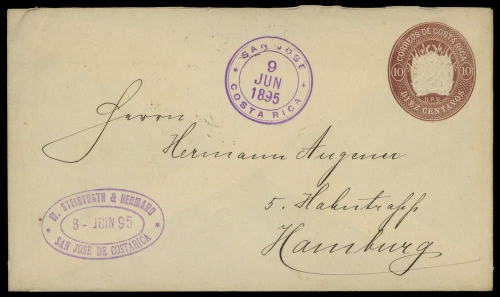 SAN JOSE
9
JUN
1895
COSTA RICA
CORREOS DE COSTA RICA
10 10
U.P.U.
DIEZ CENTAVOS
Herrn
Hermann Augener
5. Hahntrapp
Hamburg
W. STEINVORTH & HERMANO
8 - JUIN 95
SAN JOSÉ DE COSTARICA